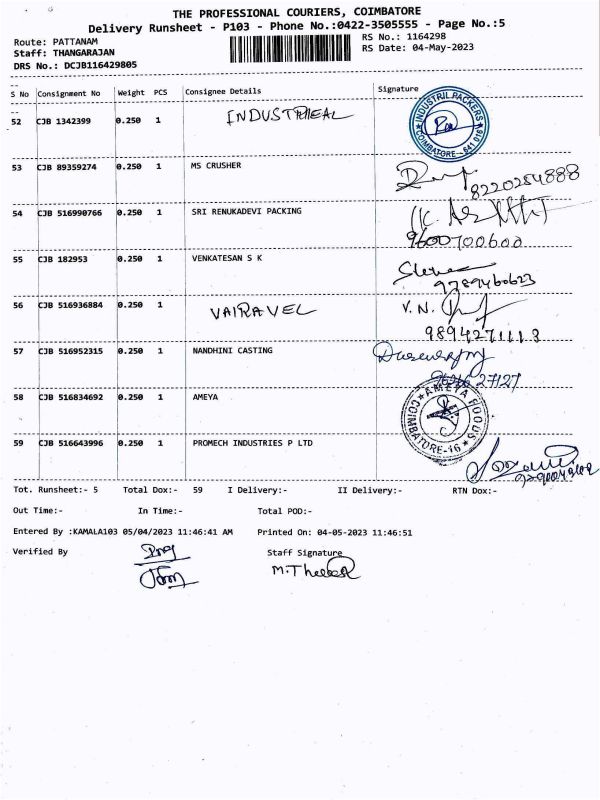 THE PROFESSIONAL COURIERS, COIMBATORE
Delivery Runsheet - P103 - Phone No.:0422-3505555 - Page No.:5
Route: PATTANAM RS No.: 1164298
Staff: THANGARAJAN RS Date: 04-May-2023
DRS No.: DCJB116429805
S No Consignment No Weight PCS Consignee Details Signature
52 CJB 1342399 0.250 1 INDUSTRIEAL INDUSTRIL PACKERS COIMBATORE - 641 016
53 CJB 89359274 0.250 1 MS CRUSHER
8220254888
54 CJB 516990766 0.250 1 SRI RENUKADEVI PACKING
9600700600
55 CJB 182953 0.250 1 VENKATESAN S K
9789460623
56 CJB 516936884 0.250 1 VAIRAVEL V.N.
9894271118
57 CJB 516952315 0.250 1 NANDHINI CASTING
27127
58 CJB 516834692 0.250 1 AMEYA AMEYA FOODS COIMBATORE-16
59 CJB 516643996 0.250 1 PROMECH INDUSTRIES P LTD
Tot. Runsheet:- 5 Total Dox:- 59 I Delivery:- II Delivery:- RTN Dox:-
Out Time:- In Time:- Total POD:-
Entered By :KAMALA103 05/04/2023 11:46:41 AM Printed On: 04-05-2023 11:46:51
Verified By Staff Signature